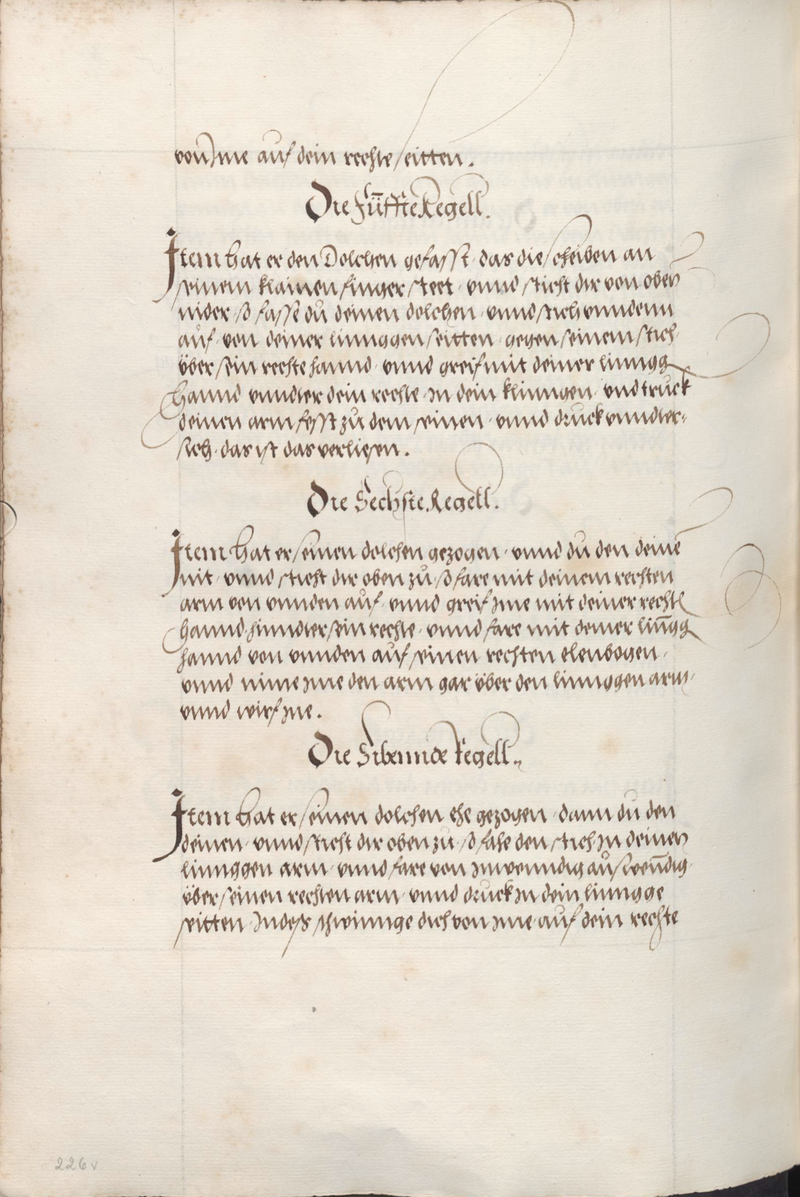 von jme auf dein rechte seitten.
Die Fünffte Regell.
Item hat er den Dolchen gefasst, das die scheiben an
seinem klainen finger steet, vnnd sticht dir von oben
nider, so fasse du deinen dolchen, vnnd stich vnnden
auf, von deiner linnggen seitten, gegen seinem stich
über sein rechte hannd, vnnd greif mit deiner lingg
hannd vnndter dein rechte, in dein klinngen, vnd truck
deinen arm fesst zů dem seinen, vnnd druck vnndter-
sich, das ist das verliesen.
Die Sechste Regell.
Item hat er seinen dolchen gezogen, vnnd du den deinē
nit, vnnd sticht dir oben zů, so fare mit deinem rechten
arm von vnnden auf, vnnd greif jme mit deiner rechtē
hannd hinndter sein rechte, vnnd fare mit deiner linngg
hannd von vnnden auf seinen rechten elenbogen,
vnnd nime jme den arm gar über den linnggen arm,
vnnd wirf jne.
Die Sibennde Regell.
Item hat er seinen dolchen ehe gezogen, dann du den
deinen, vnnd sticht dir oben zu, so fahe den stich in deinen
linnggen arm, vnnd fare von inwenndig auswenndig
über seinen rechten arm, vnnd druck in dein lingge
seitten, Indess schwinnge dich von jme, auf dein rechte
226v